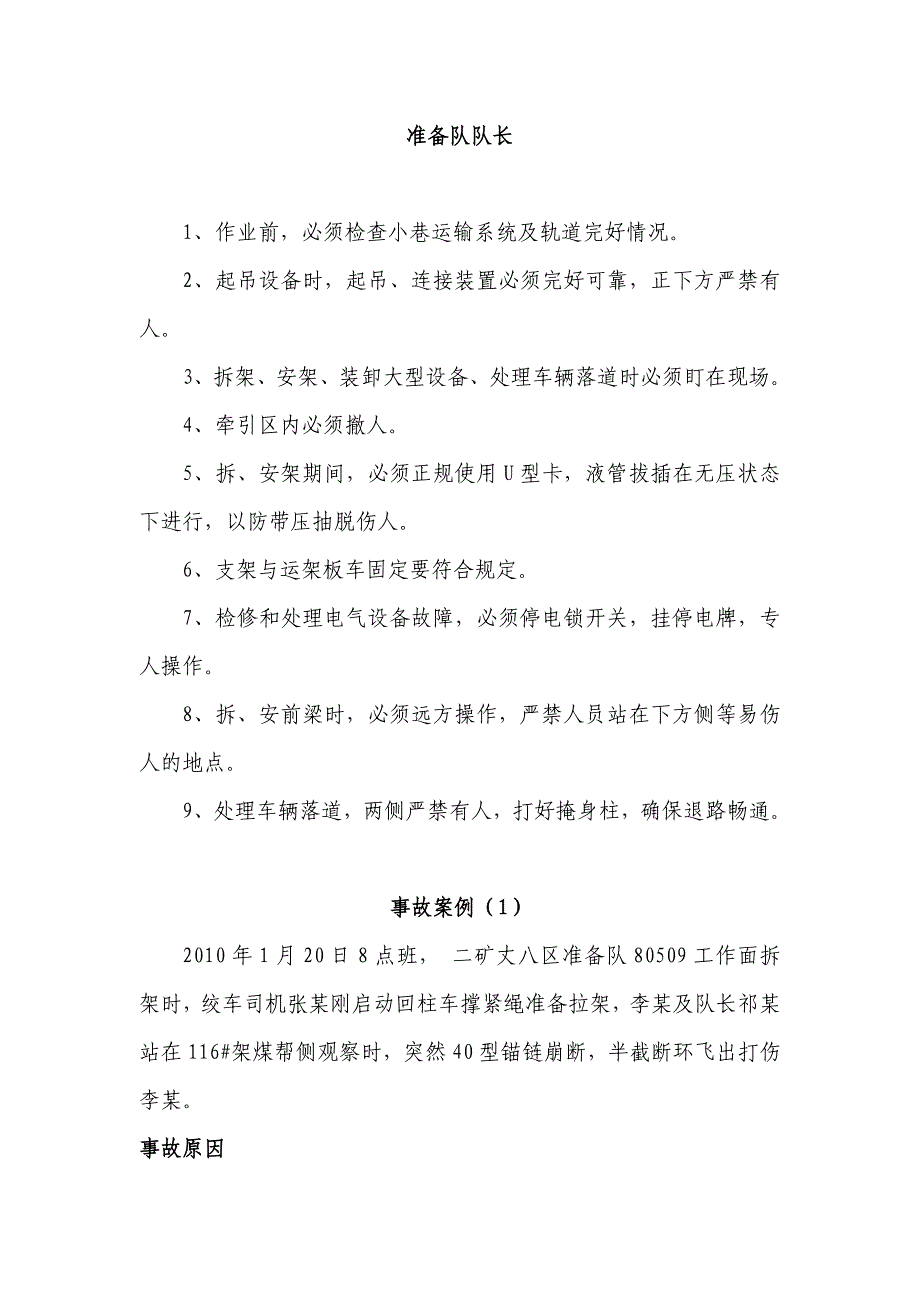 准备队队长
1、作业前，必须检查小巷运输系统及轨道完好情况。
2、起吊设备时，起吊、连接装置必须完好可靠，正下方严禁有
人。
3、拆架、安架、装卸大型设备、处理车辆落道时必须盯在现场。
4、牵引区内必须撤人。
5、拆、安架期间，必须正规使用 U 型卡，液管拔插在无压状态
下进行，以防带压抽脱伤人。
6、支架与运架板车固定要符合规定。
7、检修和处理电气设备故障，必须停电锁开关，挂停电牌，专
人操作。
8、拆、安前梁时，必须远方操作，严禁人员站在下方侧等易伤
人的地点。
9、处理车辆落道，两侧严禁有人，打好掩身柱，确保退路畅通。
事故案例（1）
2010 年 1 月 20 日 8 点班， 二矿丈八区准备队 80509 工作面拆
架时，绞车司机张某刚启动回柱车撑紧绳准备拉架，李某及队长祁某
站在 116#架煤帮侧观察时，突然 40 型锚链崩断，半截断环飞出打伤
李某。
事故原因